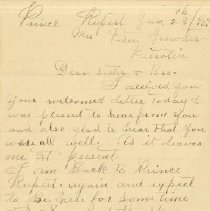 Prince Rupert Jan 28th
Mrs Peter
Dear Sister & Bro.
I received you
your welcomed letter today &
was pleased to hear from you
and also glad to hear that you
were all well. As it leaves
me at present
I am Back to Prince
Rupert again and expect
to be here for some time